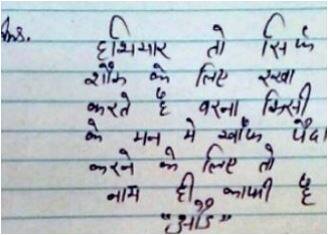 हथियार तो सिर्फ
शौक के लिए रखा
करते है वरना किसी
के मन मे खौफ पैदा
करने के लिए तो
नाम ही काफी है